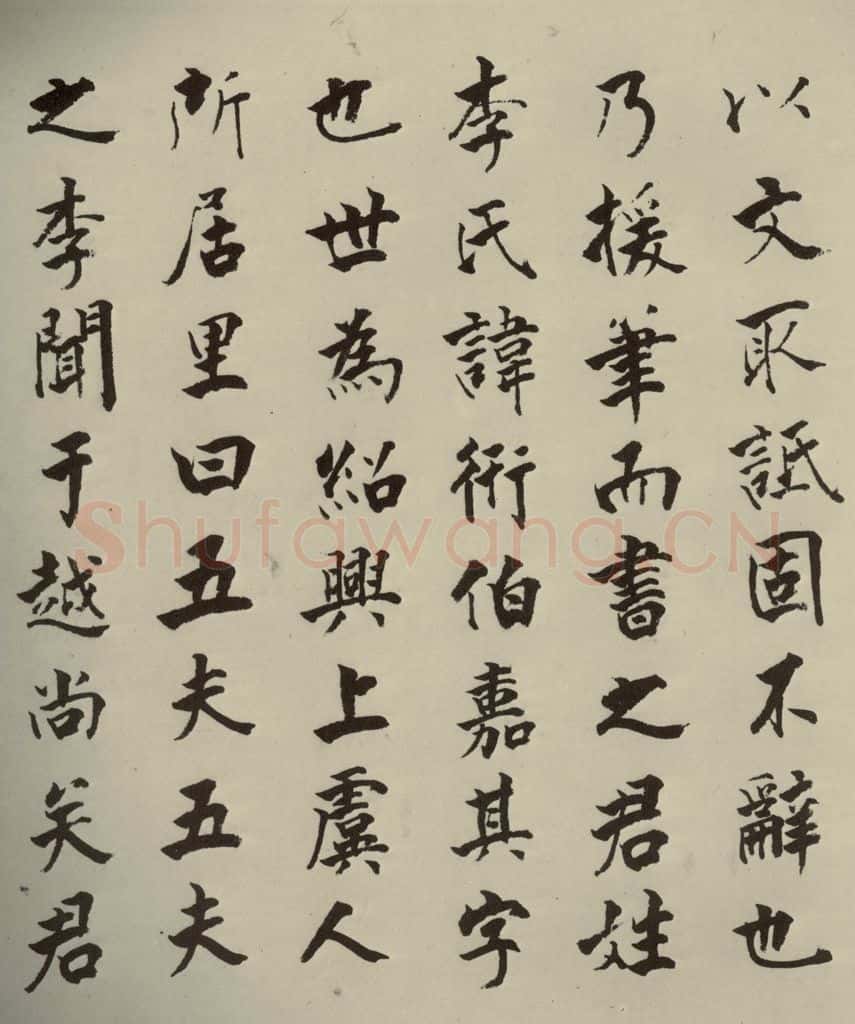 以文取詆固不辭也
乃援筆而書之君姓
李氏諱衎伯嘉其字
也世為紹興上虞人
所居里曰五夫五夫
之李聞于越尚矣君
Shufawang.CN